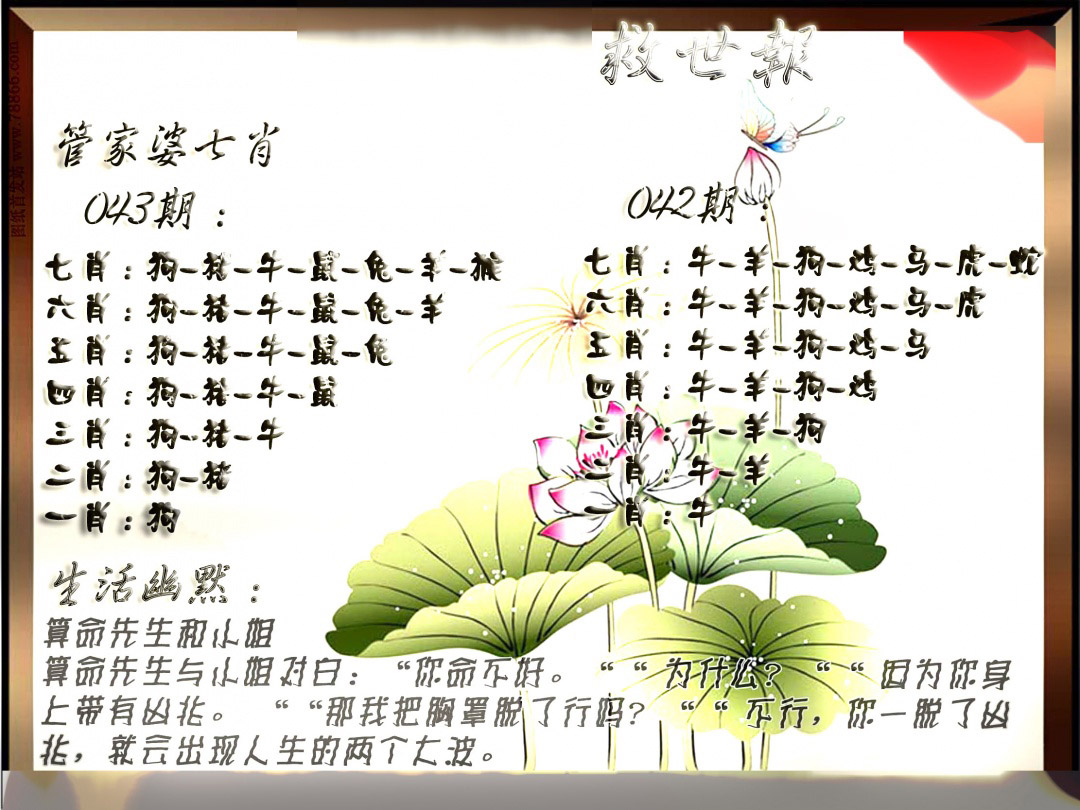 救世報
管家婆七肖
043期：
七肖：狗-猪-牛-鼠-兔-羊-猴
六肖：狗-猪-牛-鼠-兔-羊
五肖：狗-猪-牛-鼠-兔
四肖：狗-猪-牛-鼠
三肖：狗-猪-牛
二肖：狗-猪
一肖：狗
042期：
七肖：牛-羊-狗-鸡-马-虎-蛇
六肖：牛-羊-狗-鸡-马-虎
五肖：牛-羊-狗-鸡-马
四肖：牛-羊-狗-鸡
三肖：牛-羊-狗
二肖：牛-羊
一肖：牛
生活幽默：
算命先生和小姐
算命先生与小姐对白：“你命不好。““为什么？““因为你身
上带有凶兆。““那我把胸罩脱了行吗？““不行，你一脱了凶
兆，就会出现人生的两个大波。
图纸首发站 www.78866.com